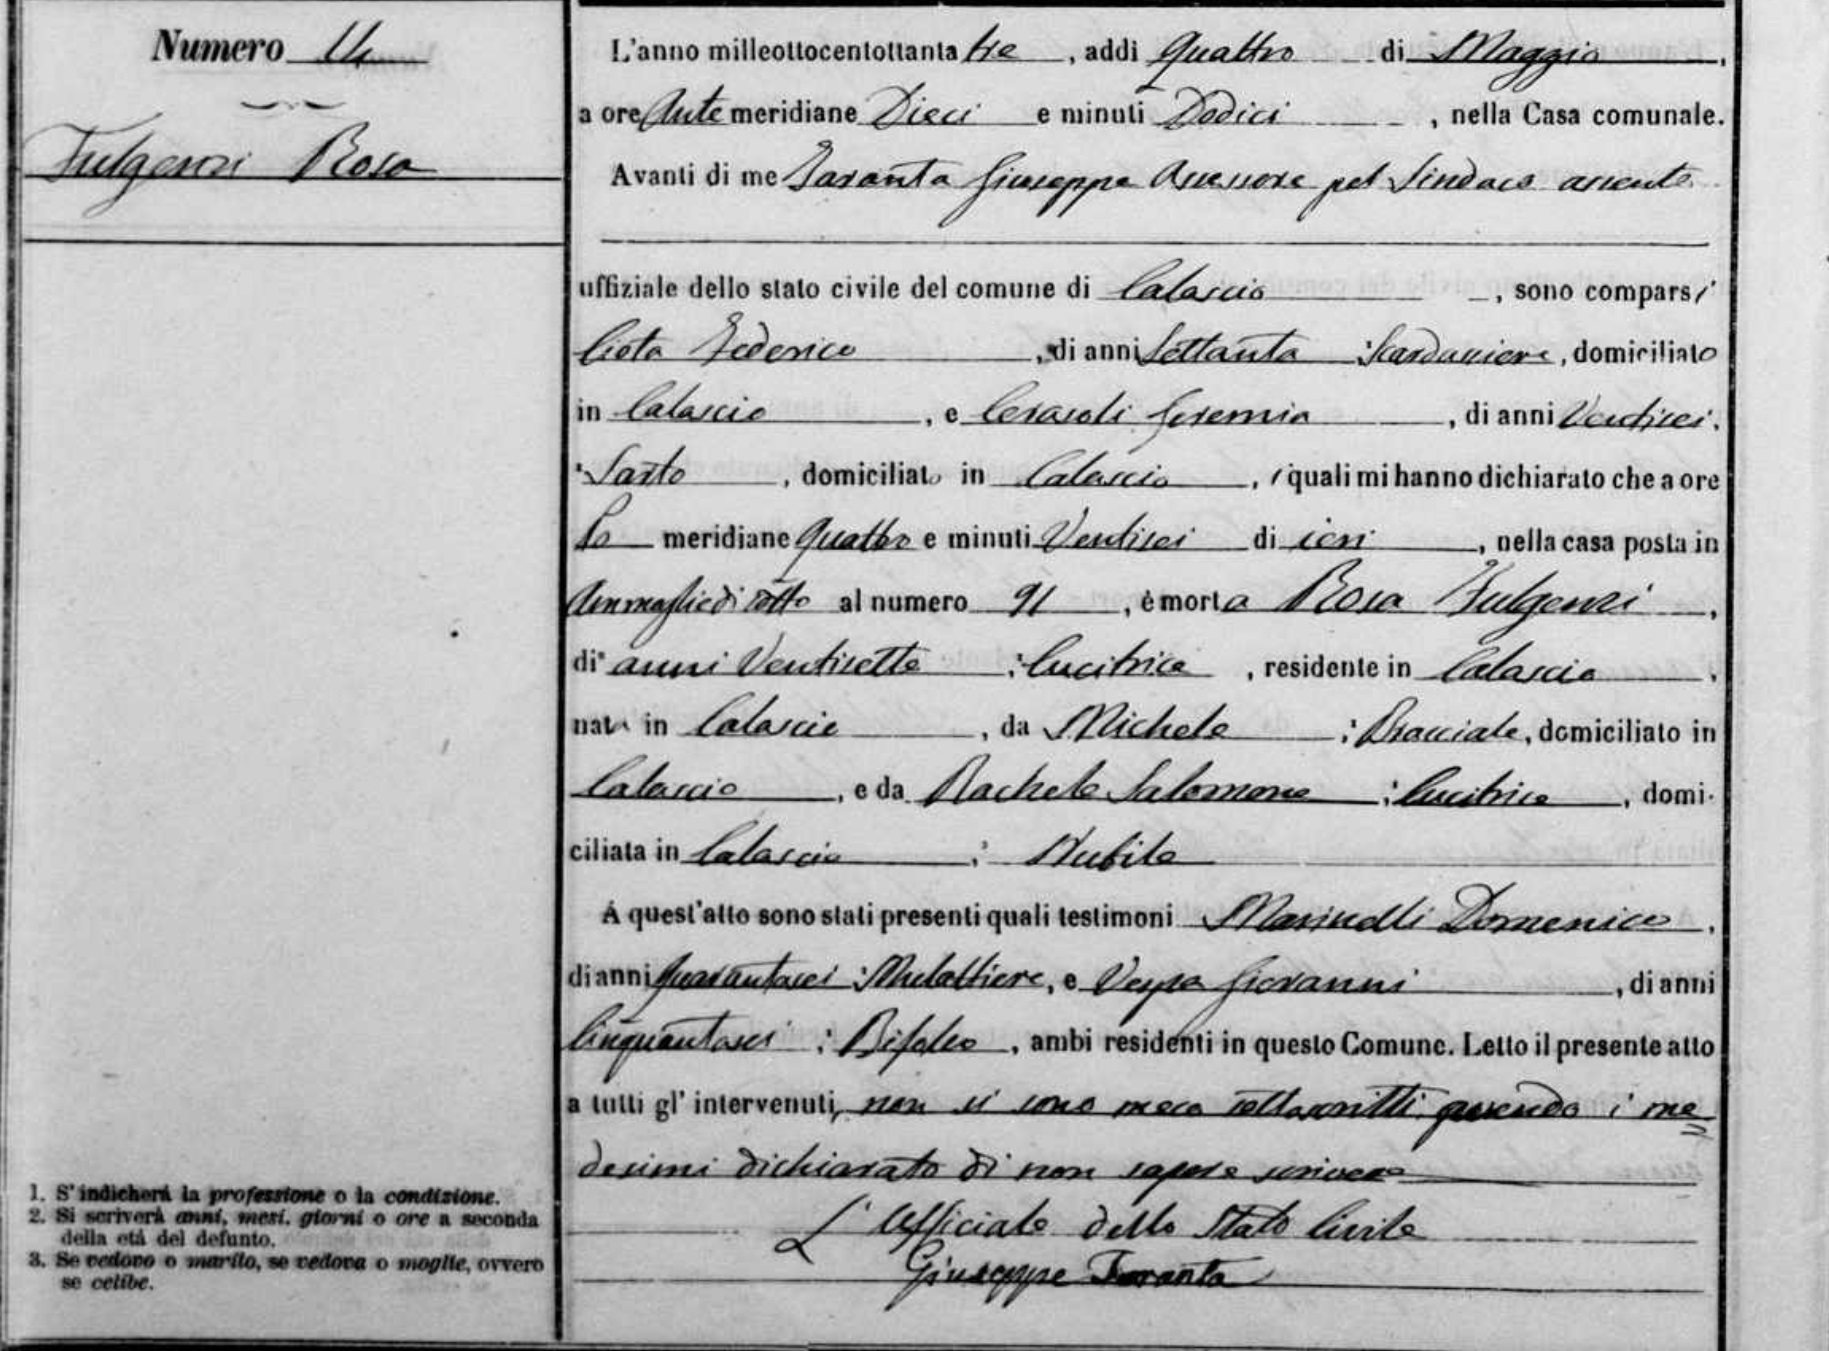 Numero 14
Fulgenzi Rosa
L'anno milleottocentottanta tre, addì Quattro di Maggio,
a ore Ante meridiane Dieci e minuti Dodici, nella Casa comunale.
Avanti di me Taranta Giuseppe Assessore pel Sindaco assente
uffiziale dello stato civile del comune di Calascio, sono comparsi
Ciota Federico, di anni Settanta : Scardassiere, domiciliato
in Calascio, e Cerasoli Geremia, di anni Ventisei,
: Sarto, domiciliato in Calascio, i quali mi hanno dichiarato che a ore
Po meridiane Quattro e minuti Ventisei di ieri, nella casa posta in
di sotto al numero 91, è morta Rosa Fulgenzi,
di anni Ventisette : Cucitrice, residente in Calascio,
nata in Calascio, da Michele : Bracciale, domiciliato in
Calascio, e da Rachele Salomone : Cucitrice, domi-
ciliata in Calascio : Nubile
A quest'atto sono stati presenti quali testimoni Marinelli Domenico,
di anni Quarantasei : Mulattiere, e Vespa Giovanni, di anni
Cinquantasei : Bifolco, ambi residenti in questo Comune. Letto il presente atto
a tutti gl' intervenuti, non si sono meco sottoscritti avendo i me=
desimi dichiarato di non sapere scrivere
L' Ufficiale dello Stato Civile
Giuseppe Taranta
1. S'indicherà la professione o la condizione.
2. Si scriverà anni, mesi, giorni o ore a seconda
della età del defunto.
3. Se vedovo o marito, se vedova o moglie, ovvero
se celibe.